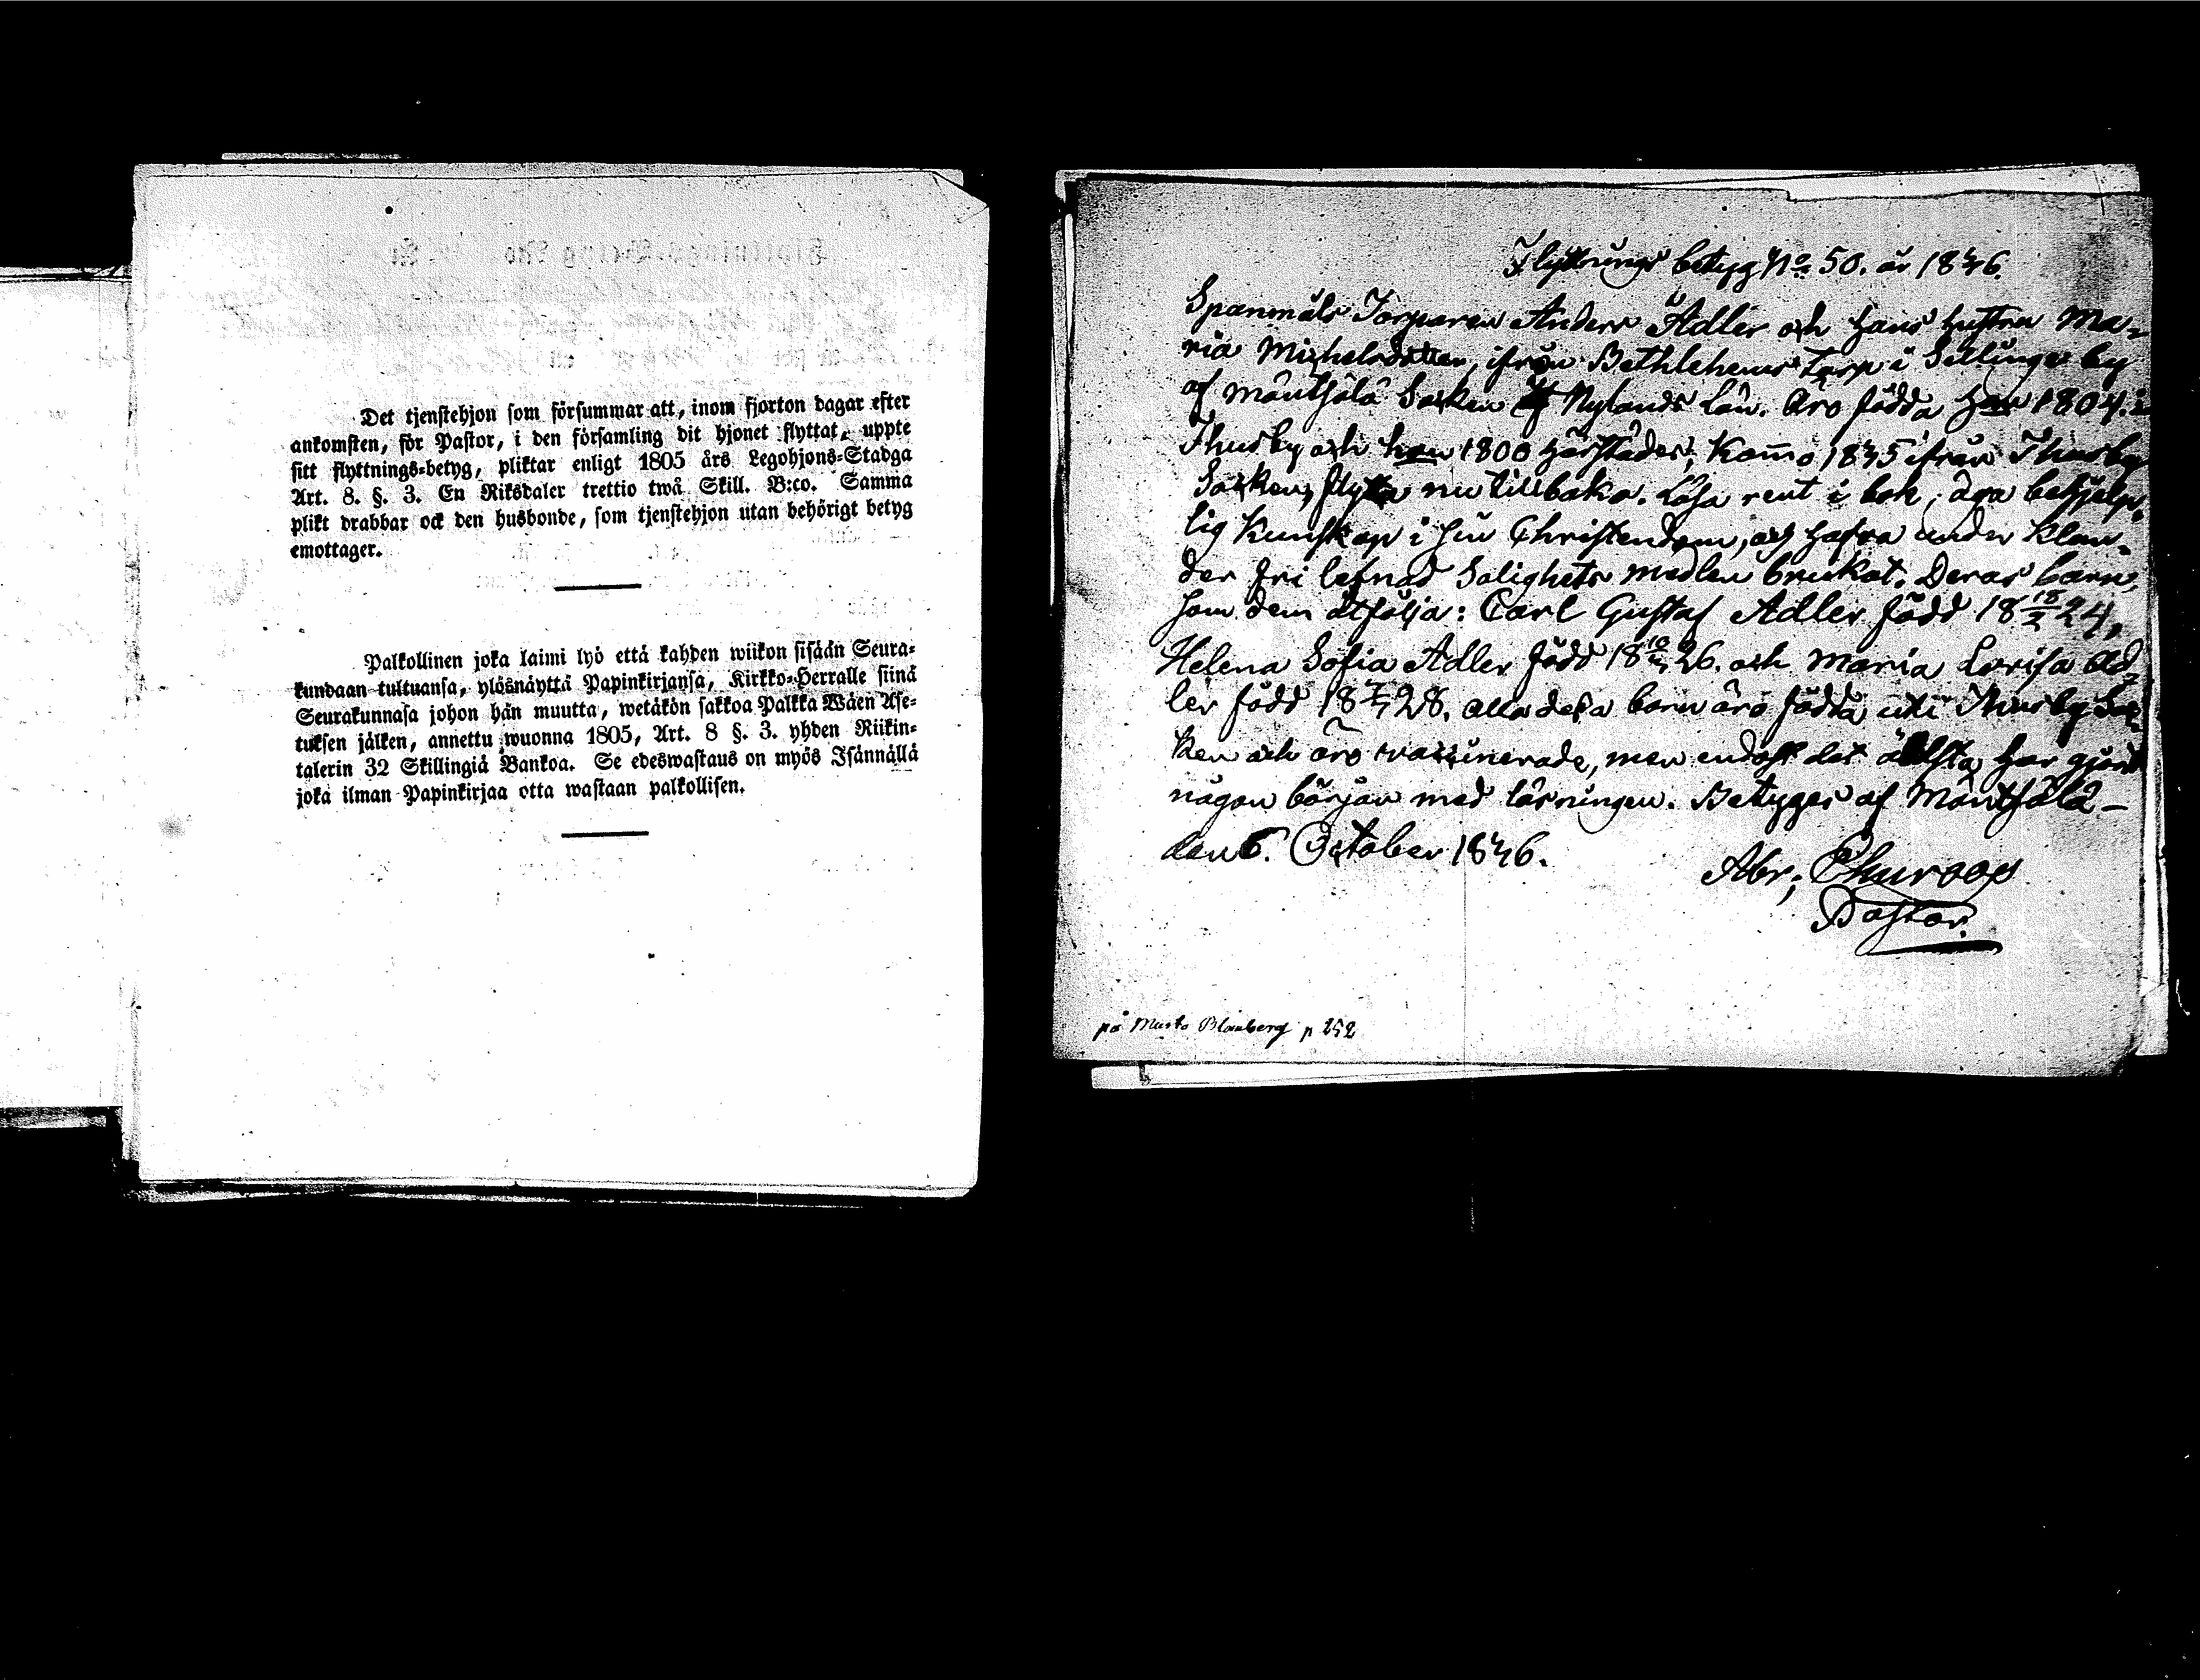 Det tjenstehjon som försummar att, inom fjorton dagar efter
ankomsten, för Pastor, i den församling dit hjonet flyttat, uppte
sitt flyttnings-betyg, pliktar enligt 1805 års Legohjons-Stadga
Art. 8. §. 3. En Riksdaler trettio twå Skill. B:co. Samma
plikt drabbar ock den husbonde, som tjenstehjon utan behörigt betyg
emottager.
Palkollinen joka laimi lyö että kahden wiikon sisään Seura-
kundaan tultuansa, ylösnäyttä Papinkirjansa, Kirkko-Herralle siinä
Seurakunnasa johon hän muutta, wetäkön sakkoa Palkka Wäen Ase-
tuksen jälken, annettu wuonna 1805, Art. 8 §. 3. yhden Riikin-
talerin 32 Skillingiä Bankoa. Se edeswastaus on myös Isännällä
joka ilman Papinkirjaa otta wastaan palkollisen.
Flyttnings betyg No 50. år 1846.
Spanmåls Torparen Anders Adler och hans hustru Ma-
ria Michelsdotter, ifrån Bethlehems Torp i Sälinge by
af Mäntsälä Socken Nylands Län. Äro födda han 1804 i
Thusby och hon 1800 härstädes; Kommo 1845 ifrån Thusby
Socken, flytta nu tillbaka. Läsa rent i bok, äga behjelp-
lig Kunskap i sin Christendom, och hafva under Klan-
der fri lefnad Salighets medlen brukat. Deras barn,
som dem åtfölja: Carl Gustaf Adler född 18 18/2 24,
Helena Sofia Adler född 18 26. och Maria Lovisa Ad-
ler född 18 28. Alla dessa barn äro födda uti Thusby So-
ken och äro vaccinerade, men endast det äldsta har gjort
någon början med läsningen. Betyges af Mäntsälä –
den 6. October 1846.
Abr; Churoop
Pastor.
på Musta Blauberg p 252